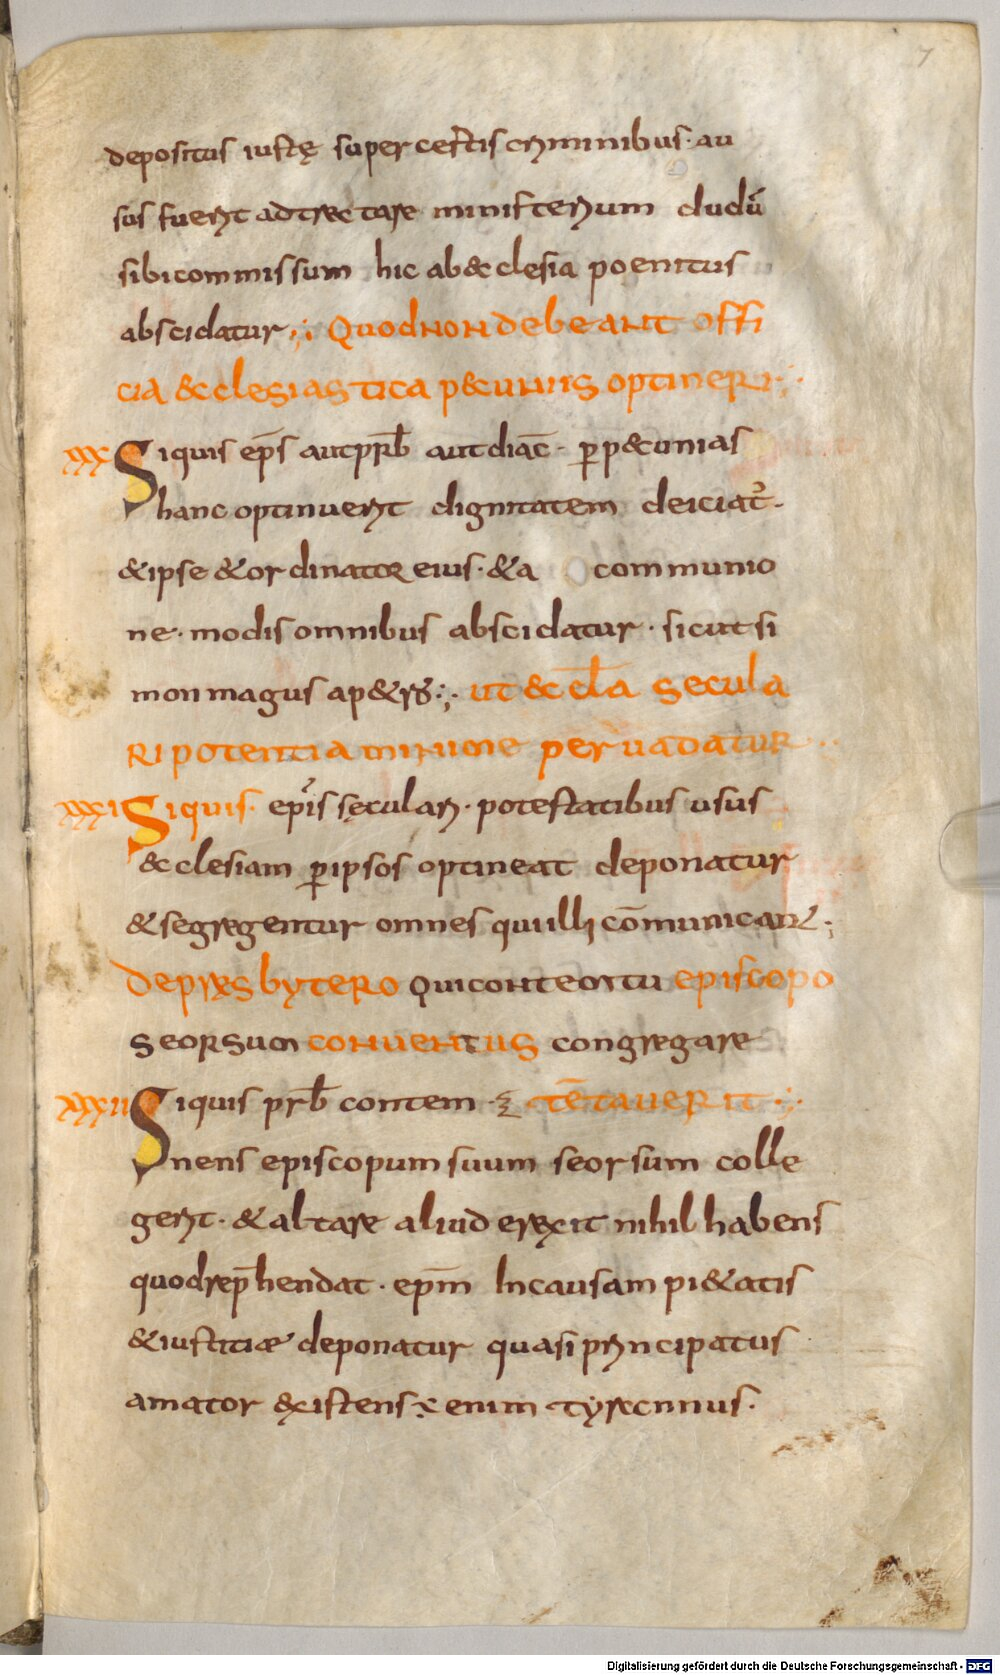 7
depositus iustę super certis criminibus · au
sus fuerit adtrectare ministerium dudū
sibi commissum hic ab &clesia poenitus
abscidatur ; Quod non debeant offi
cia &clesiastica p&uniis optineri ;
XXX Siquis ep̄s aut prb̄ aut diac̄ · ꝑ p&unias
hanc optinuerit dignitatem deiciat̄ ·
& ipse & ordinator eius · & a communio
ne · modis omnibus abscidatur · sicut si
mon magus a p&ro ; ut &cl̄a secula
ri potentia minime pervadatur
XXXI Siquis ep̄is sęculari · potestatibus usus
&clesiam ꝑ ipsos optineat deponatur
& segregentur omnes qui illi cōmunicant ;
De pręsbytero qui contentu episcopo
seorsum conventus congregare
XXXII Siquis prb̄ contem tētaverit ;
nens episcopum suum seorsum colle
gerit · & altare aliud erexit nihil habens
quod rep̄hendat · ep̄m In causam pi&atis
& iustitiæ deponatur quasi principatus
amator existens · enim tyrannus ·
Digitalisierung gefördert durch die Deutsche Forschungsgemeinschaft - DFG